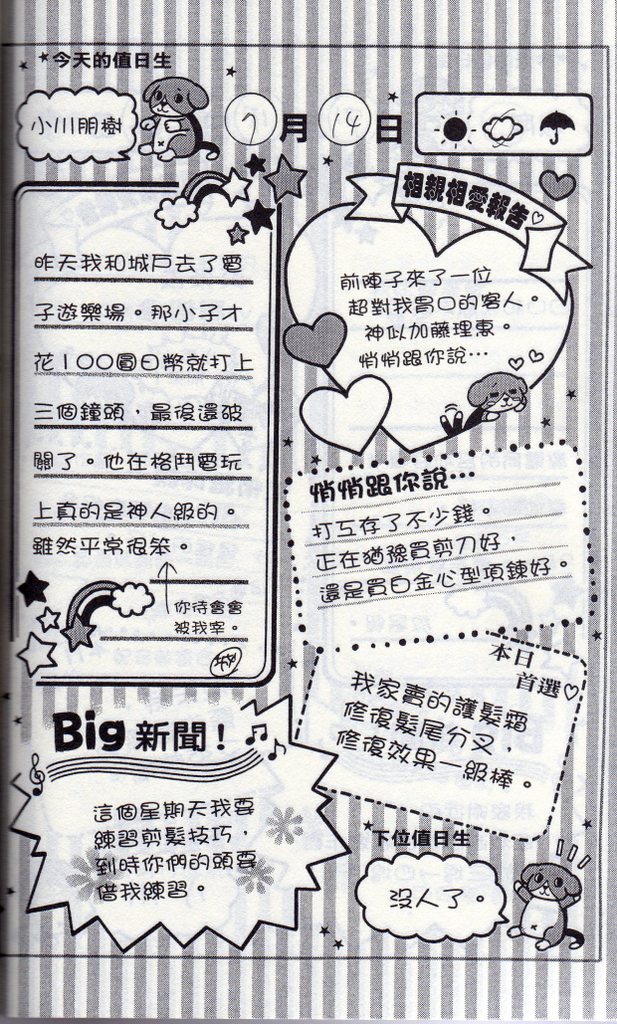 今天的值日生
小川朋樹
7月14日
相親相愛報告♡
昨天我和城戶去了電
子遊樂場。那小子才
花100圓日幣就打上
三個鐘頭，最後還破
關了。他在格鬥電玩
上真的是神人級的。
雖然平常很笨。
你待會會
被我宰。
城
前陣子來了一位
超對我胃口的客人。
神似加藤理惠。
悄悄跟你說…
悄悄跟你說…
打工存了不少錢。
正在猶豫買剪刀好，
還是買白金心型項鍊好。
本日
首選♡
我家賣的護髮霜
修復髮尾分叉，
修復效果一級棒。
Big 新聞！
這個星期天我要
練習剪髮技巧，
到時你們的頭要
借我練習。
下位值日生
沒人了。